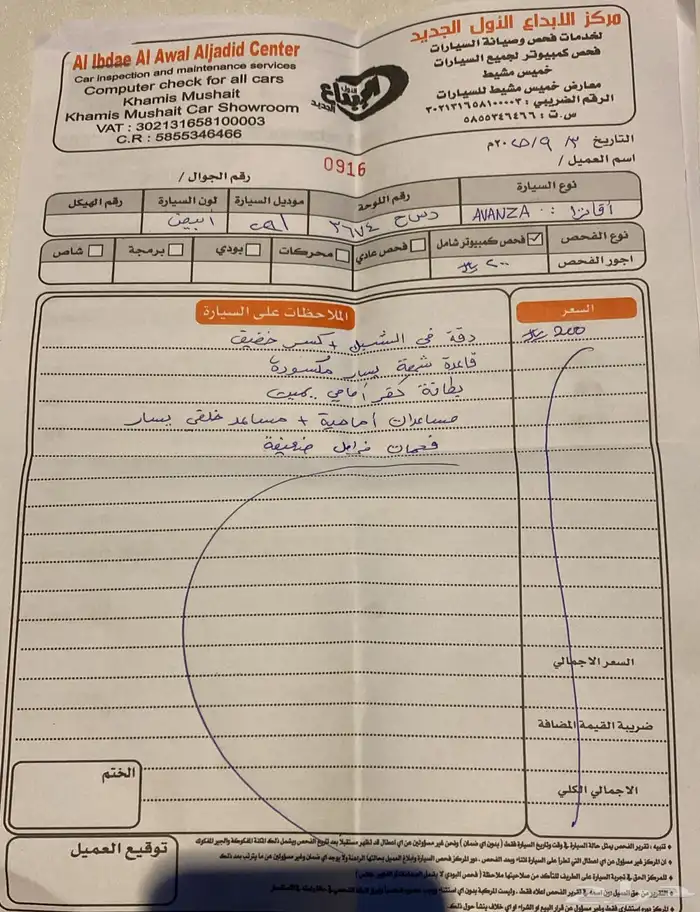 Al Ibdae Al Awal Aljadid Center
Car inspection and maintenance services
Computer check for all cars
Khamis Mushait
Khamis Mushait Car Showroom
VAT : 302131658100003
C.R : 5855346466
الأول
الإبداع
الجديد
مركز الابداع الأول الجديد
لخدمات فحص وصيانة السيارات
فحص كمبيوتر لجميع السيارات
خميس مشيط
معارض خميس مشيط للسيارات
الرقم الضريبي : ٣٠٢١٣١٦٥٨١٠٠٠٠٣
س.ت : ٥٨٥٥٣٤٦٤٦٦
التاريخ ٣ / ٩ / ٢٠٢٥م
اسم العميل /
0916
رقم الجوال /
نوع السيارة
رقم اللوحة
موديل السيارة
لون السيارة
رقم الهيكل
أفانزا : AVANZA
د س ح ٣٦٧٤
أبيض
نوع الفحص
فحص كمبيوتر شامل
فحص عادي
محركات
بودي
برمجة
شاص
اجور الفحص
٢٠٠
السعر
الملاحظات على السيارة
200
دقة في الستيل + كسر خفيف
قاعدة شمعة يسار مكسورة
بطانة كفر أمامي يميت
مساعدات أمامية + مساعد خلفي يسار
قحمات فرامل ضعيفة
السعر الاجمالي
ضريبة القيمة المضافة
الاجمالي الكلي
الختم
توقيع العميل